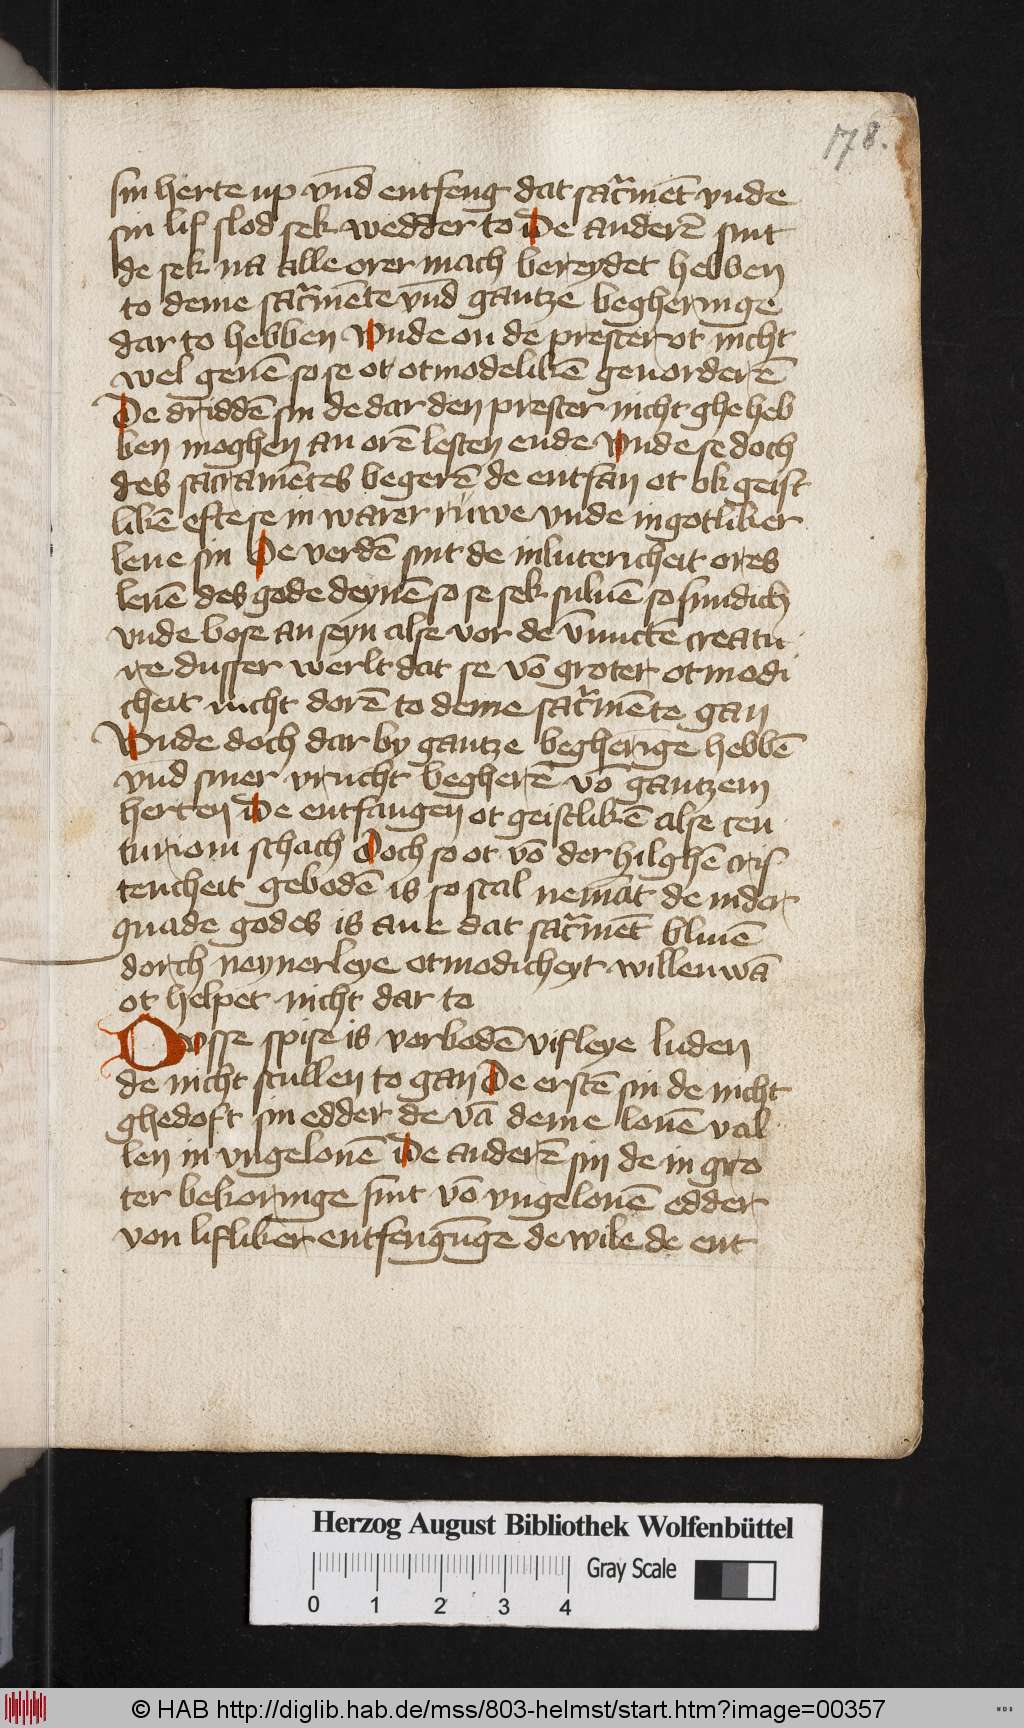 178.
sin herte up vn̄d entfeng dat sacr̄me̅t vnde
sin lif slod sek wedder to De andere̅ sint
de sek na alle orer mach bereydet hebben
to deme sacr̄me̅te vn̄d gantze begheringe
dar to hebben Vnde on de prester ot nicht
wel geue̅ so se ot otmodelike̅ geuordere̅
De dridde̅ sin de dar den prester nicht ghe heb
ben moghen an ore̅ lesten ende Vnde se doch
des sacrame̅tes begere̅ de entfan ot ok geist
like̅ efte se in warer ruwe vnde in gotliker
leue sin De verde̅ sint de in luttericheit ores
leue̅ des gode deyne̅ so se sek sulue̅ so sundich
vnde bose an seyn alse vor de v̅nu̅cte̅ creatu
re dusser werlt dat se vo̅ groter otmodi
cheit nicht dore̅ to deme sacr̄me̅te gan
Vnde doch dar by gantze begheri̅ge hebbe̅
vn̄d siner vrucht beghere̅ vo̅ gantzem
herten De entfangen ot geistlike̅ alse cen
turioni schach Doch so ot vo̅ der hilghe̅ cris
tencheit gebode̅ is so scal nema̅t de in der
gnade godes is ane dat sacr̄me̅t bliue̅
dorch neynerleye otmodicheyt willen wa̅
ot helpet nicht dar to
Dusse spise is vorbode̅ vifleye luden
de nicht scullen to gan De erste̅ sin de nicht
ghedoft sin edder de va̅ deme loue̅ val
len in vngeloue̅ De andere̅ sin de in gro
ter bekoringe sint vo̅ vngeloue̅ edder
von lifliker entfengu̅ge de wile de ent
Herzog August Bibliothek Wolfenbüttel
Gray Scale
0 1 2 3 4
© HAB http://diglib.hab.de/mss/803-helmst/start.htm?image=00357